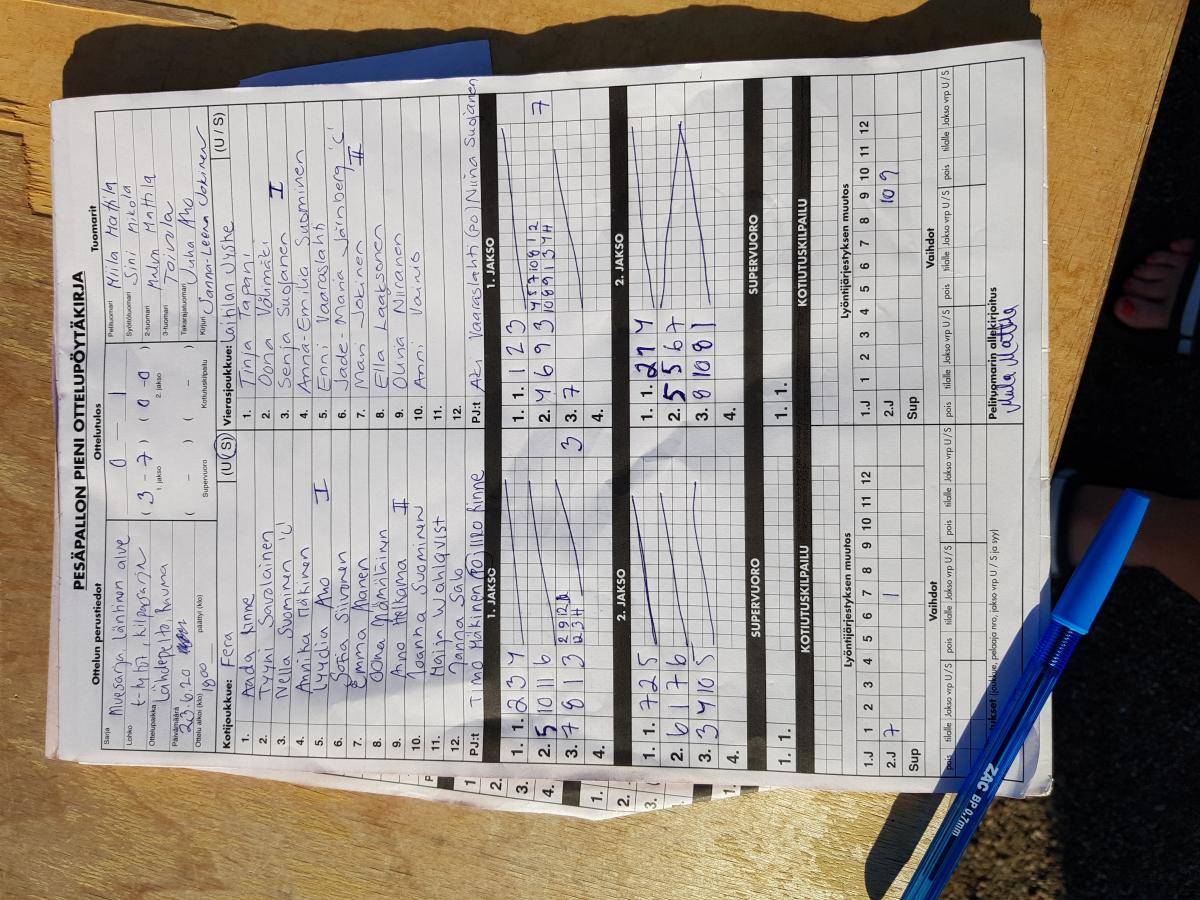 PESÄPALLON PIENI OTTELUPÖYTÄKIRJA
Ottelun perustiedot
Ottelutulos
Tuomarit
Sarja Muesarja, läntinen alue
Lohko t-tytöt, kilpasarja
Ottelupaikka Lähdepelto, Rauma
Päivämäärä 23.6.20
Ottelu alkoi (klo) 1800 päättyi (klo)
0 – 1
( 3 – 7 ) ( 0 – 0 )
1. jakso 2. jakso
( – ) ( – )
Supervuoro Kotiutuskilpailu
Pelituomari Miila Mattila
Syöttötuomari Sini Mikola
2-tuomari Malin Mattila
3-tuomari Toivola
Takarajatuomari Juha Aho
Kirjuri Sanna-Leena Jokinen
Kotijoukkue: Fera (U / S)
1. Aada Rinne
2. Tyyni Savolainen
3. Nella Suominen 'C'
4. Annika Mäkinen
5. Lyydia Aho I
6. Sofia Siivonen
7. Emma Manen
8. Oona Hämäläinen
9. Anno Helkama II
10. Joanna Suominen
11. Maija Wahlqvist
12. Janna Salo
PJ:t Timo Mäkinen Rinne
Vierasjoukkue: Laitilan Jyske (U / S)
1. Tinja Tapani
2. Oona Välimäki
3. Senja Suojanen I
4. Anna-Emilia Suominen
5. Enni Vaaraslahti
6. Jade Maria Jännberg 'C'
7. Mari Jokinen II
8. Ella Laaksonen
9. Olivia Niiranen
10. Anni Vainio
11.
12.
PJ:t Aki Vaaraslahti (PO) Niina Suojanen
1. JAKSO
1. 1. 2 3 4
2. 5 10 11 6
3. 7 8 1 3 3
4.
1. JAKSO
1. 1. 1 2 3
2. 4 6 9 3 7
3. 7
4.
2. JAKSO
1. 1. 7 2 5
2. 6 1 7 6
3. 3 4 10 5
4.
2. JAKSO
1. 1. 2 4
2. 5 5 6 7
3. 8 10 8 1
4.
SUPERVUORO
1. 1.
SUPERVUORO
1. 1.
KOTIUTUSKILPAILU
KOTIUTUSKILPAILU
Lyöntijärjestyksen muutos
1.J 1 2 3 4 5 6 7 8 9 10 11 12
2.J 7 1
Sup
Lyöntijärjestyksen muutos
1.J 1 2 3 4 5 6 7 8 9 10 11 12
2.J 10 9
Sup
Vaihdot
pois tilalle Jakso vrp U / S pois tilalle Jakso vrp U / S pois tilalle Jakso vrp U / S
Vaihdot
pois tilalle Jakso vrp U / S pois tilalle Jakso vrp U / S pois tilalle Jakso vrp U / S
(joukkue, pelaaja nro, jakso vrp, U / S ja syy)
Pelituomarin allekirjoitus
Miila Mattila
ZAC BP 0,7mm